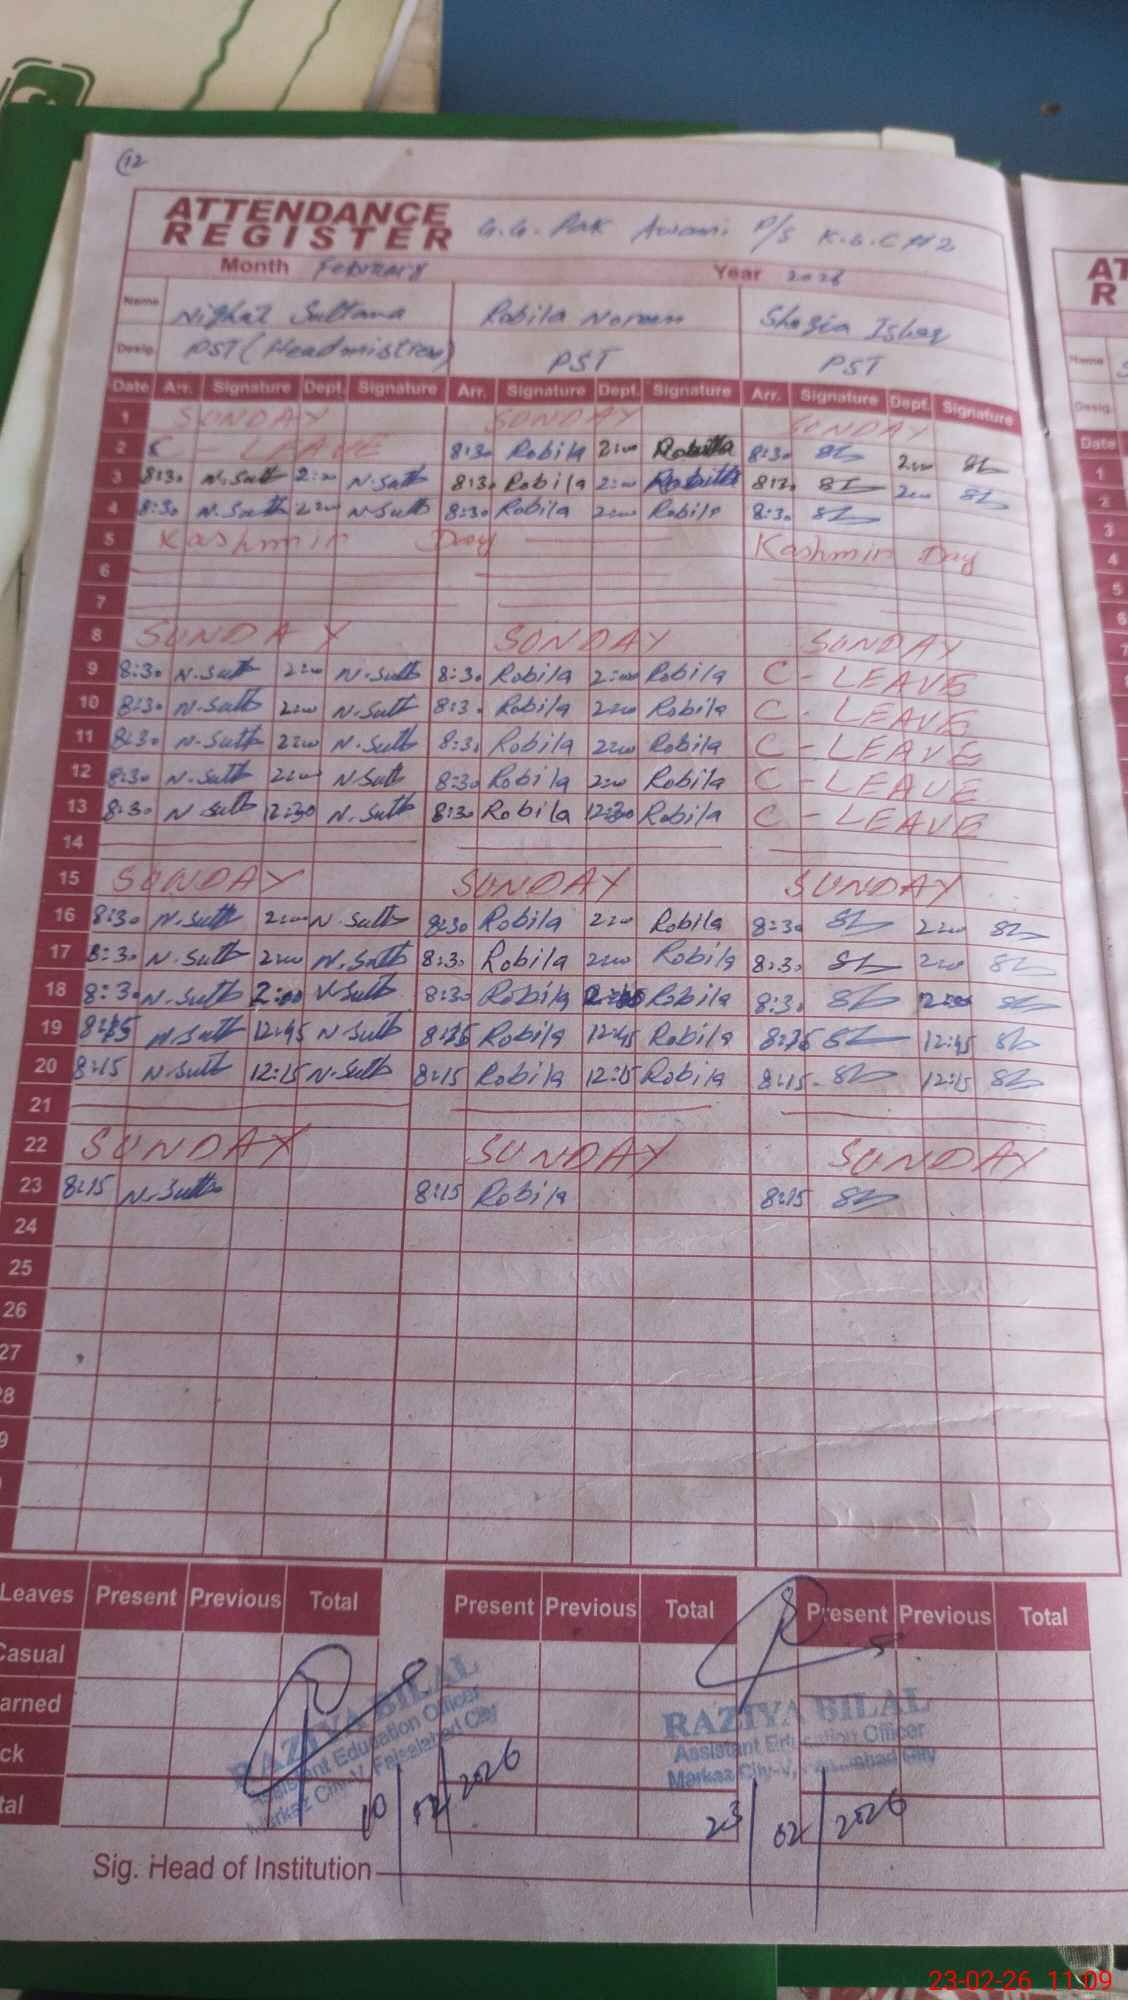 12
ATTENDANCE REGISTER G.G. Pak Awami P/S K.G.C #2
Month February Year 2026
Name Nighat Sultana Robila Noreen Shazia Ishaq
Desig. PST (Headmistress) PST PST
Date Arr. Signature Dept. Signature Arr. Signature Dept. Signature Arr. Signature Dept. Signature
1 SUNDAY SUNDAY SUNDAY
2 C - LEAVE 8:30 Robila 2:00 Robila 8:30 2:00
3 8:30 N.Sult 2:00 N.Sult 8:30 Robila 2:00 Robila 8:30 2:00
4 8:30 N.Sult 2:00 N.Sult 8:30 Robila 2:00 Robila 8:30
5 Kashmir Day Kashmir Day
6
7
8 SUNDAY SUNDAY SUNDAY
9 8:30 N.Sult 2:00 N.Sult 8:30 Robila 2:00 Robila C - LEAVE
10 8:30 N.Sult 2:00 N.Sult 8:30 Robila 2:00 Robila C - LEAVE
11 8:30 N.Sult 2:00 N.Sult 8:30 Robila 2:00 Robila C - LEAVE
12 8:30 N.Sult 2:00 N.Sult 8:30 Robila 2:00 Robila C - LEAVE
13 8:30 N.Sult 12:30 N.Sult 8:30 Robila 12:30 Robila C - LEAVE
14
15 SUNDAY SUNDAY SUNDAY
16 8:30 N.Sult 2:00 N.Sult 8:30 Robila 2:00 Robila 8:30 2:00
17 8:30 N.Sult 2:00 N.Sult 8:30 Robila 2:00 Robila 8:30 2:00
18 8:30 N.Sult 2:00 N.Sult 8:30 Robila 2:00 Robila 8:30 2:00
19 N.Sult 12:45 N.Sult Robila 12:45 Robila 12:45
20 8:15 N.Sult 12:15 N.Sult 8:15 Robila 12:15 Robila 8:15 12:15
21
22 SUNDAY SUNDAY SUNDAY
23 8:15 N.Sult 8:15 Robila 8:15
24
25
26
27
28
9
Leaves Present Previous Total Present Previous Total Present Previous Total
Casual
arned
ck
tal
RAZIYA BILAL
Assistant Education Officer
Markaz City-V, Faisalabad City
10/02/2026
RAZIYA BILAL
Assistant Education Officer
Markaz City-V, Faisalabad City
23/02/2026
Sig. Head of Institution
AT
R
Name
Desig.
Date
1
2
3
4
5
6
23-02-26 11:09